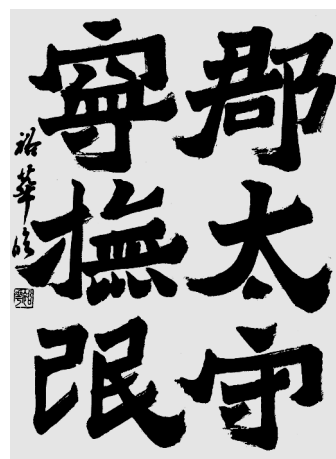 郡太守
寧撫氓
裕華臨